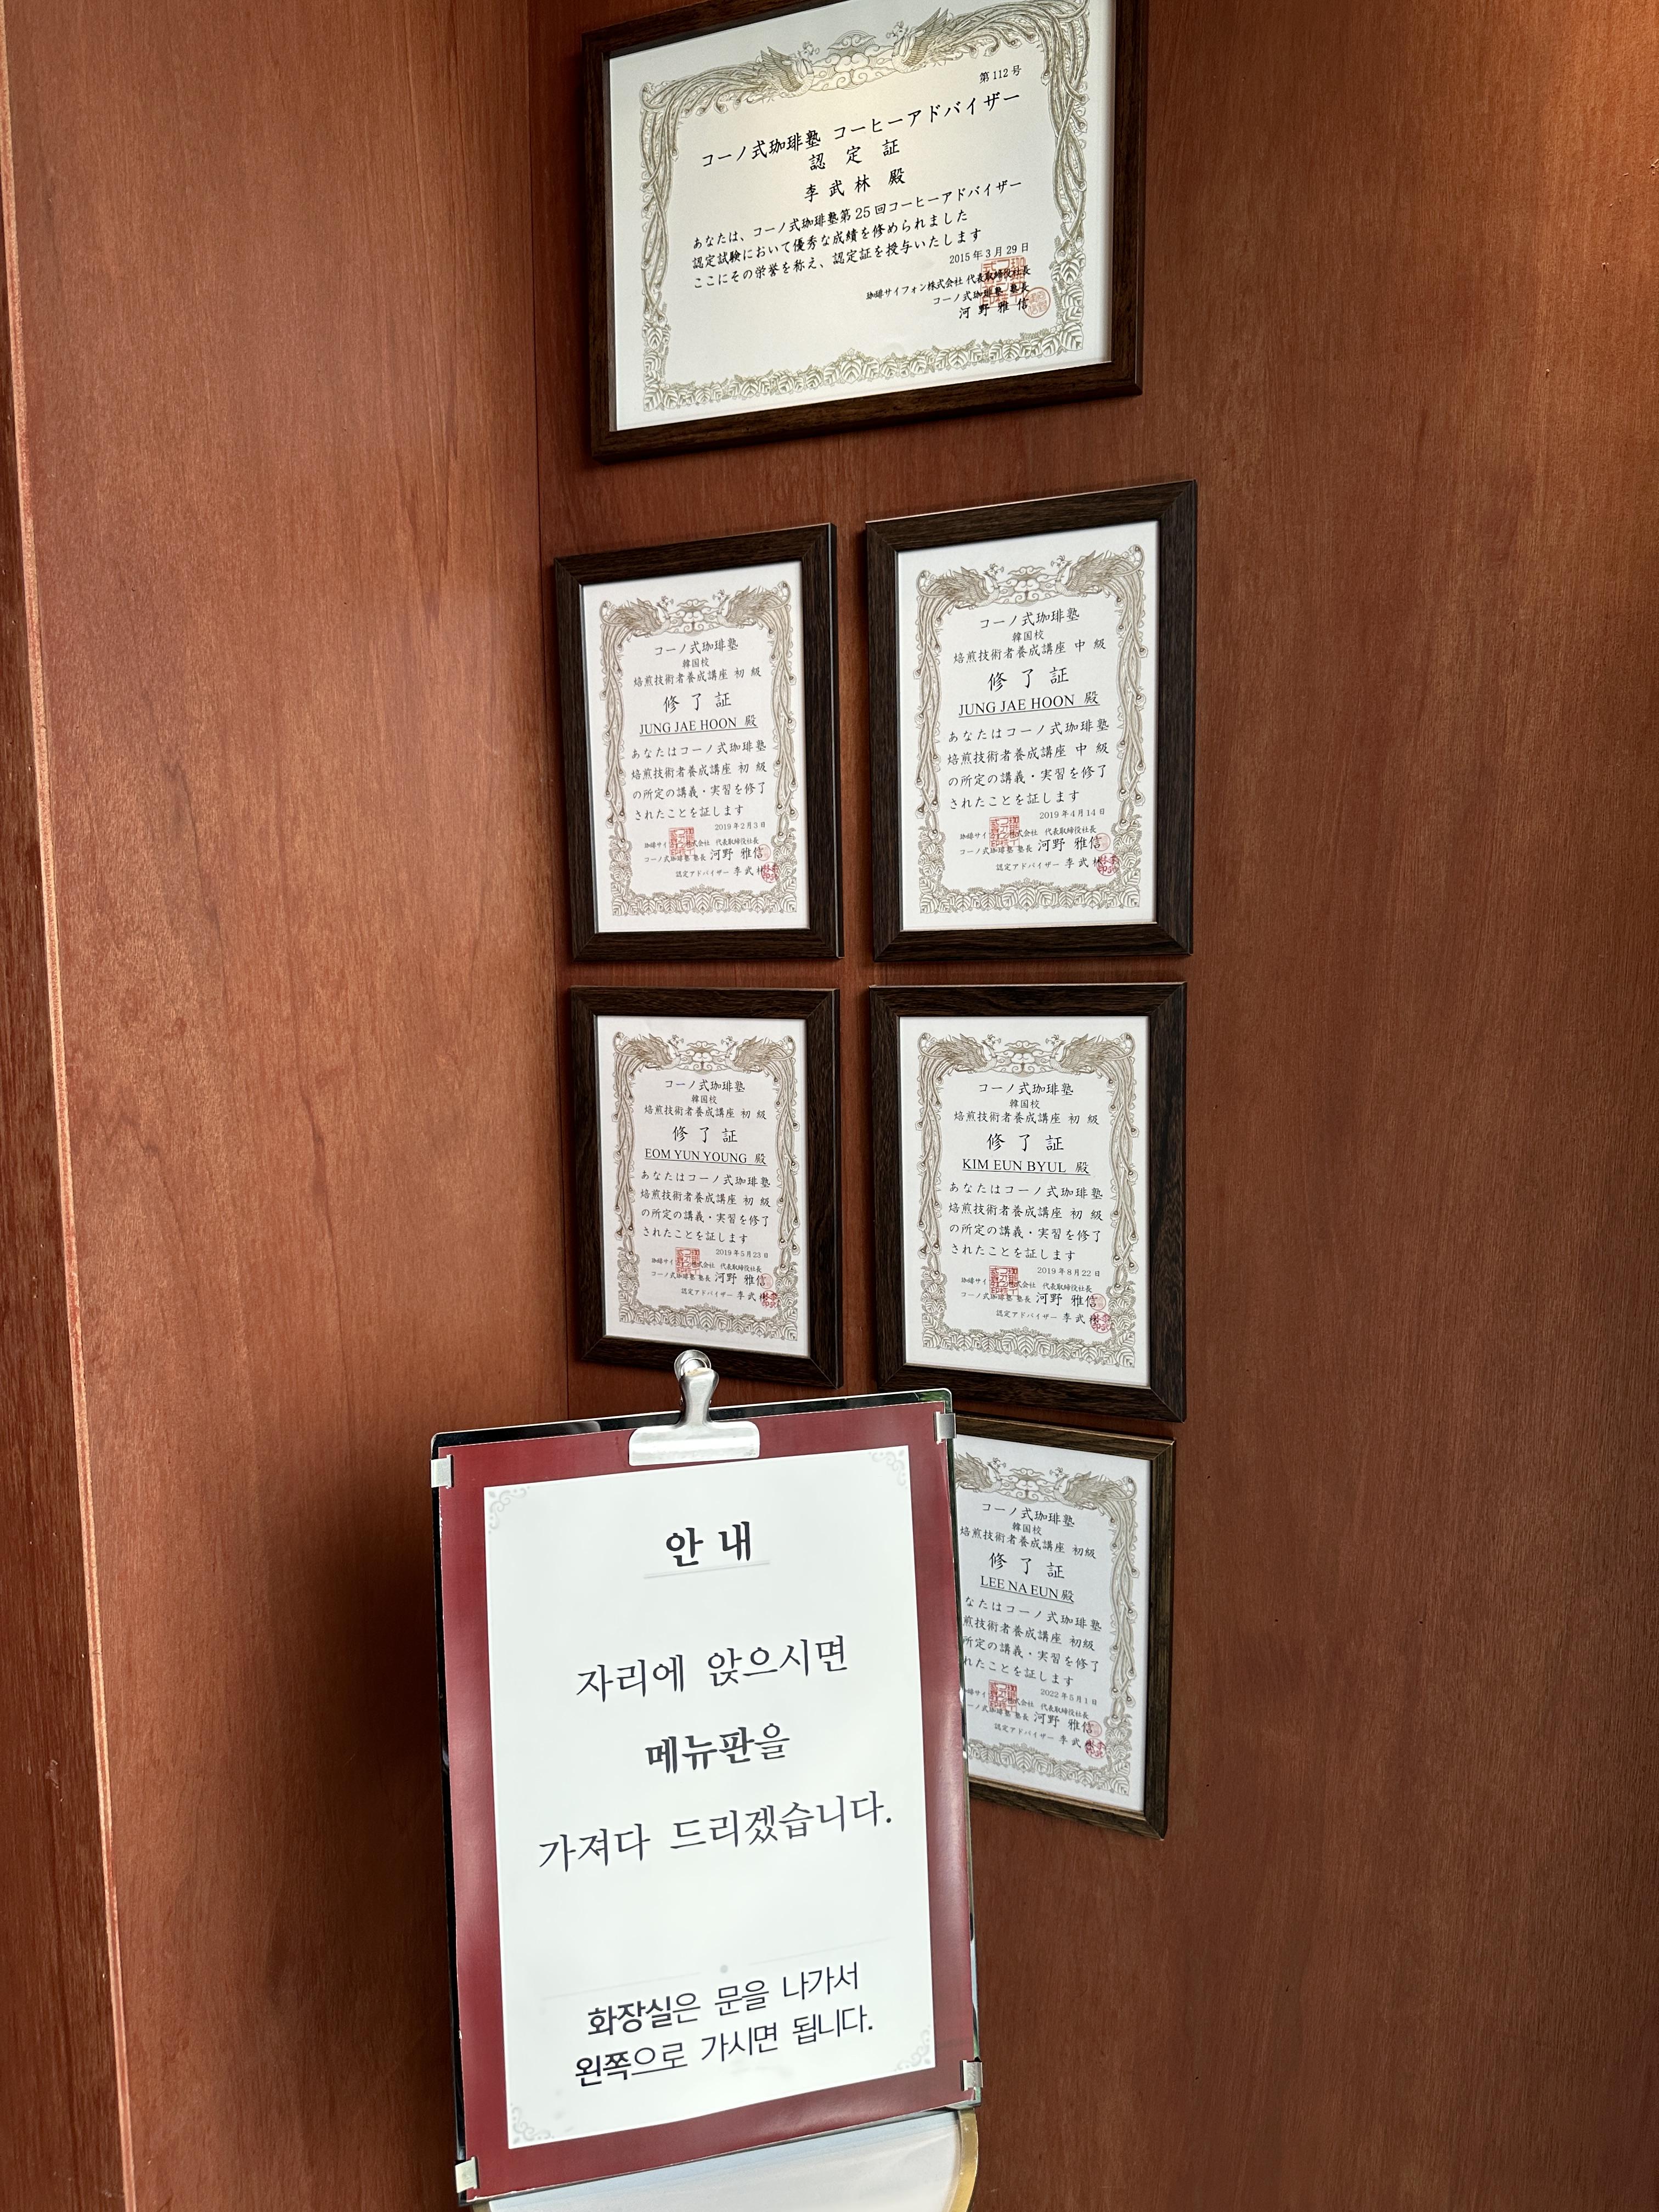 第112号
コーノ式珈琲塾 コーヒーアドバイザー
認定証
李武林 殿
あなたは、コーノ式珈琲塾第25回コーヒーアドバイザー
認定試験において優秀な成績を修められました
ここにその栄誉を称え、認定証を授与いたします
2015年3月29日
珈琲サイフォン株式会社 代表取締役社長
コーノ式珈琲塾 塾長
河野雅信
コーノ式珈琲塾
韓国校
焙煎技術者養成講座 初級
修了証
JUNG JAE HOON 殿
あなたはコーノ式珈琲塾
焙煎技術者養成講座 初級
の所定の講義・実習を修了
されたことを証します
2019年2月3日
珈琲サイ 株式会社 代表取締役社長
コーノ式珈琲塾 塾長 河野 雅信
認定アドバイザー 李武林
コーノ式珈琲塾
韓国校
焙煎技術者養成講座 中級
修了証
JUNG JAE HOON 殿
あなたはコーノ式珈琲塾
焙煎技術者養成講座 中級
の所定の講義・実習を修了
されたことを証します
2019年4月14日
珈琲サイ 株式会社 代表取締役社長
コーノ式珈琲塾 塾長 河野 雅信
認定アドバイザー 李武林
コーノ式珈琲塾
韓国校
焙煎技術者養成講座 初級
修了証
EOM YUN YOUNG 殿
あなたはコーノ式珈琲塾
焙煎技術者養成講座 初級
の所定の講義・実習を修了
されたことを証します
2019年5月23日
珈琲サイ 株式会社 代表取締役社長
コーノ式珈琲塾 塾長 河野 雅信
認定アドバイザー 李武林
コーノ式珈琲塾
韓国校
焙煎技術者養成講座 初級
修了証
KIM EUN BYUL 殿
あなたはコーノ式珈琲塾
焙煎技術者養成講座 初級
の所定の講義・実習を修了
されたことを証します
2019年8月22日
珈琲サイ 株式会社 代表取締役社長
コーノ式珈琲塾 塾長 河野 雅信
認定アドバイザー 李武林
コーノ式珈琲塾
韓国校
焙煎技術者養成講座 初級
修了証
LEE NA EUN 殿
なたはコーノ式珈琲塾
煎技術者養成講座 初級
所定の講義・実習を修了
れたことを証します
2022年5月1日
琲サイ 株式会社 代表取締役社長
ーノ式珈琲塾 塾長 河野 雅信
認定アドバイザー 李武
안내
자리에 앉으시면
메뉴판을
가져다 드리겠습니다.
화장실은 문을 나가서
왼쪽으로 가시면 됩니다.